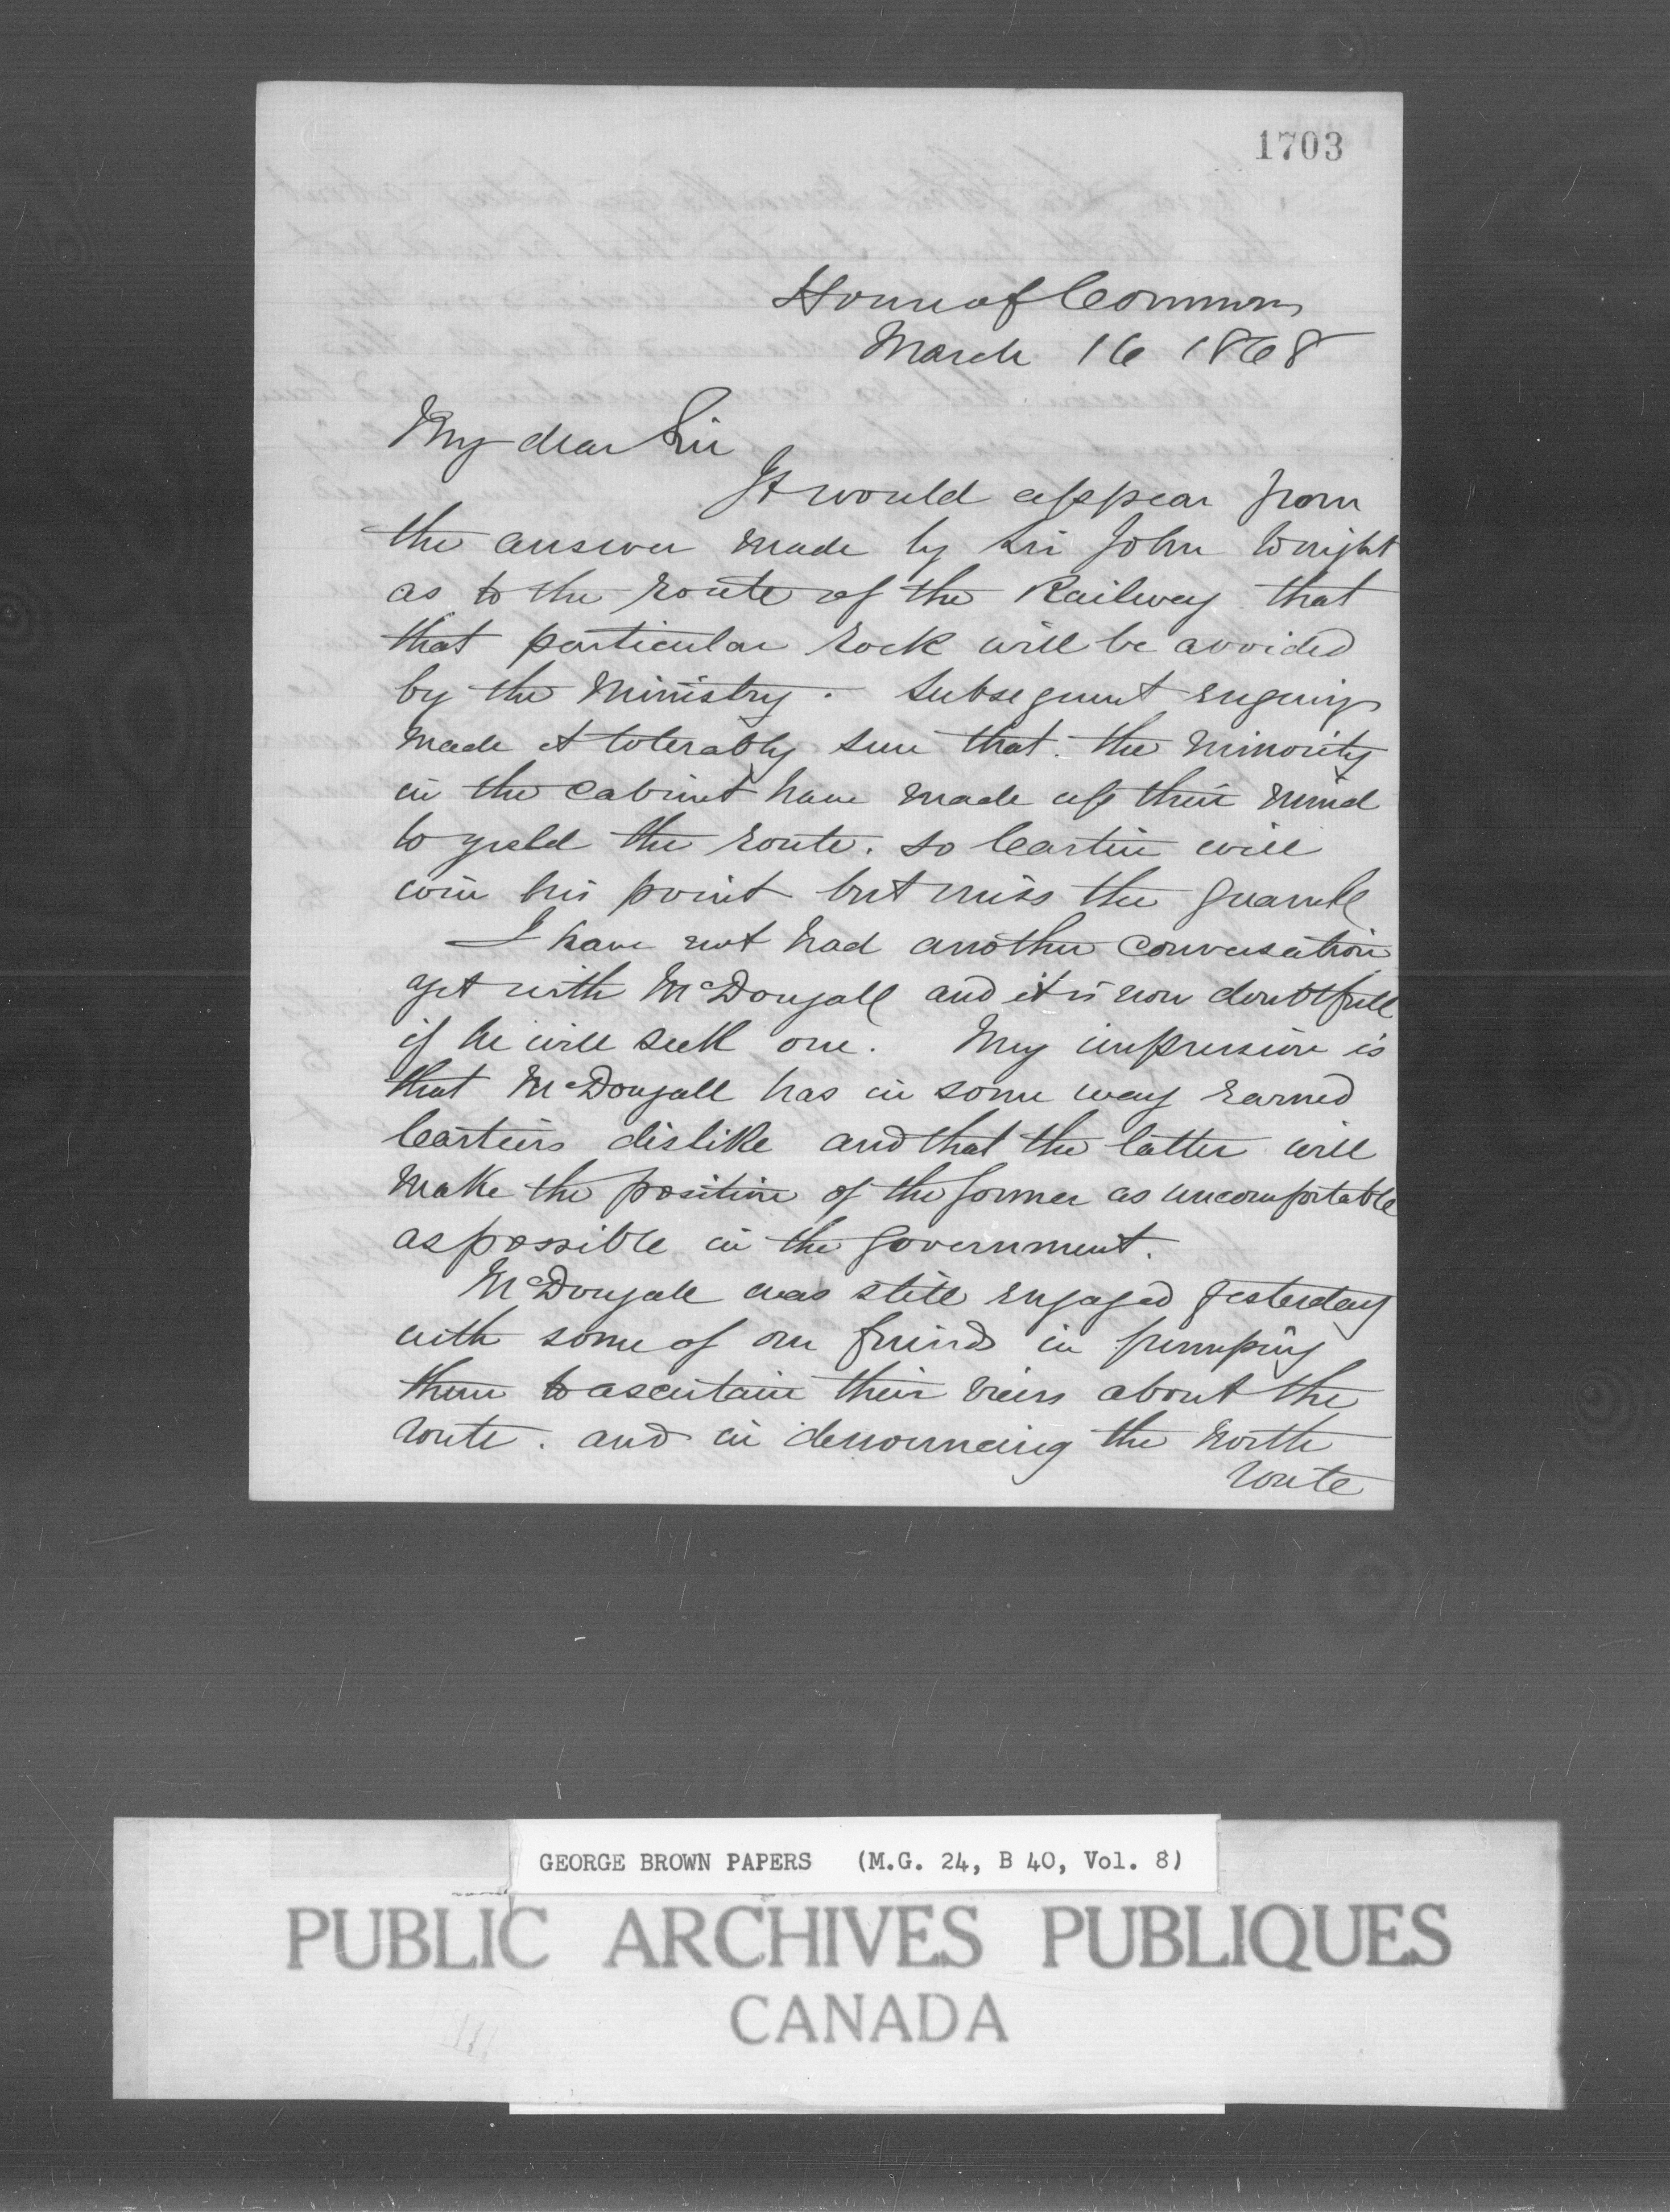 1703
House of Commons
March 16 1868
My dear Sir
It would appear from
the answer made by Sir John tonight
as to the route of the Railway that
that particular rock will be avoided
by the Ministry. Subsequent enquiry
made it tolerably sure that the minority
in the Cabinet have made up their mind
to yield the route. So Cartier will
win his point but miss the quarrel
I have not had another conversation
yet with McDougall and it is now doubtfull
if he will seek one. My impression is
that McDougall has in some way earned
Cartiers dislike and that the latter will
make the position of the former as uncomfortable
as possible in the Government.
McDougall was still engaged yesterday
with some of our friends in pumping
them to ascertain their views about the
route. and in denouncing the North
route
GEORGE BROWN PAPERS (M.G. 24, B 40, Vol. 8)
PUBLIC ARCHIVES PUBLIQUES
CANADA